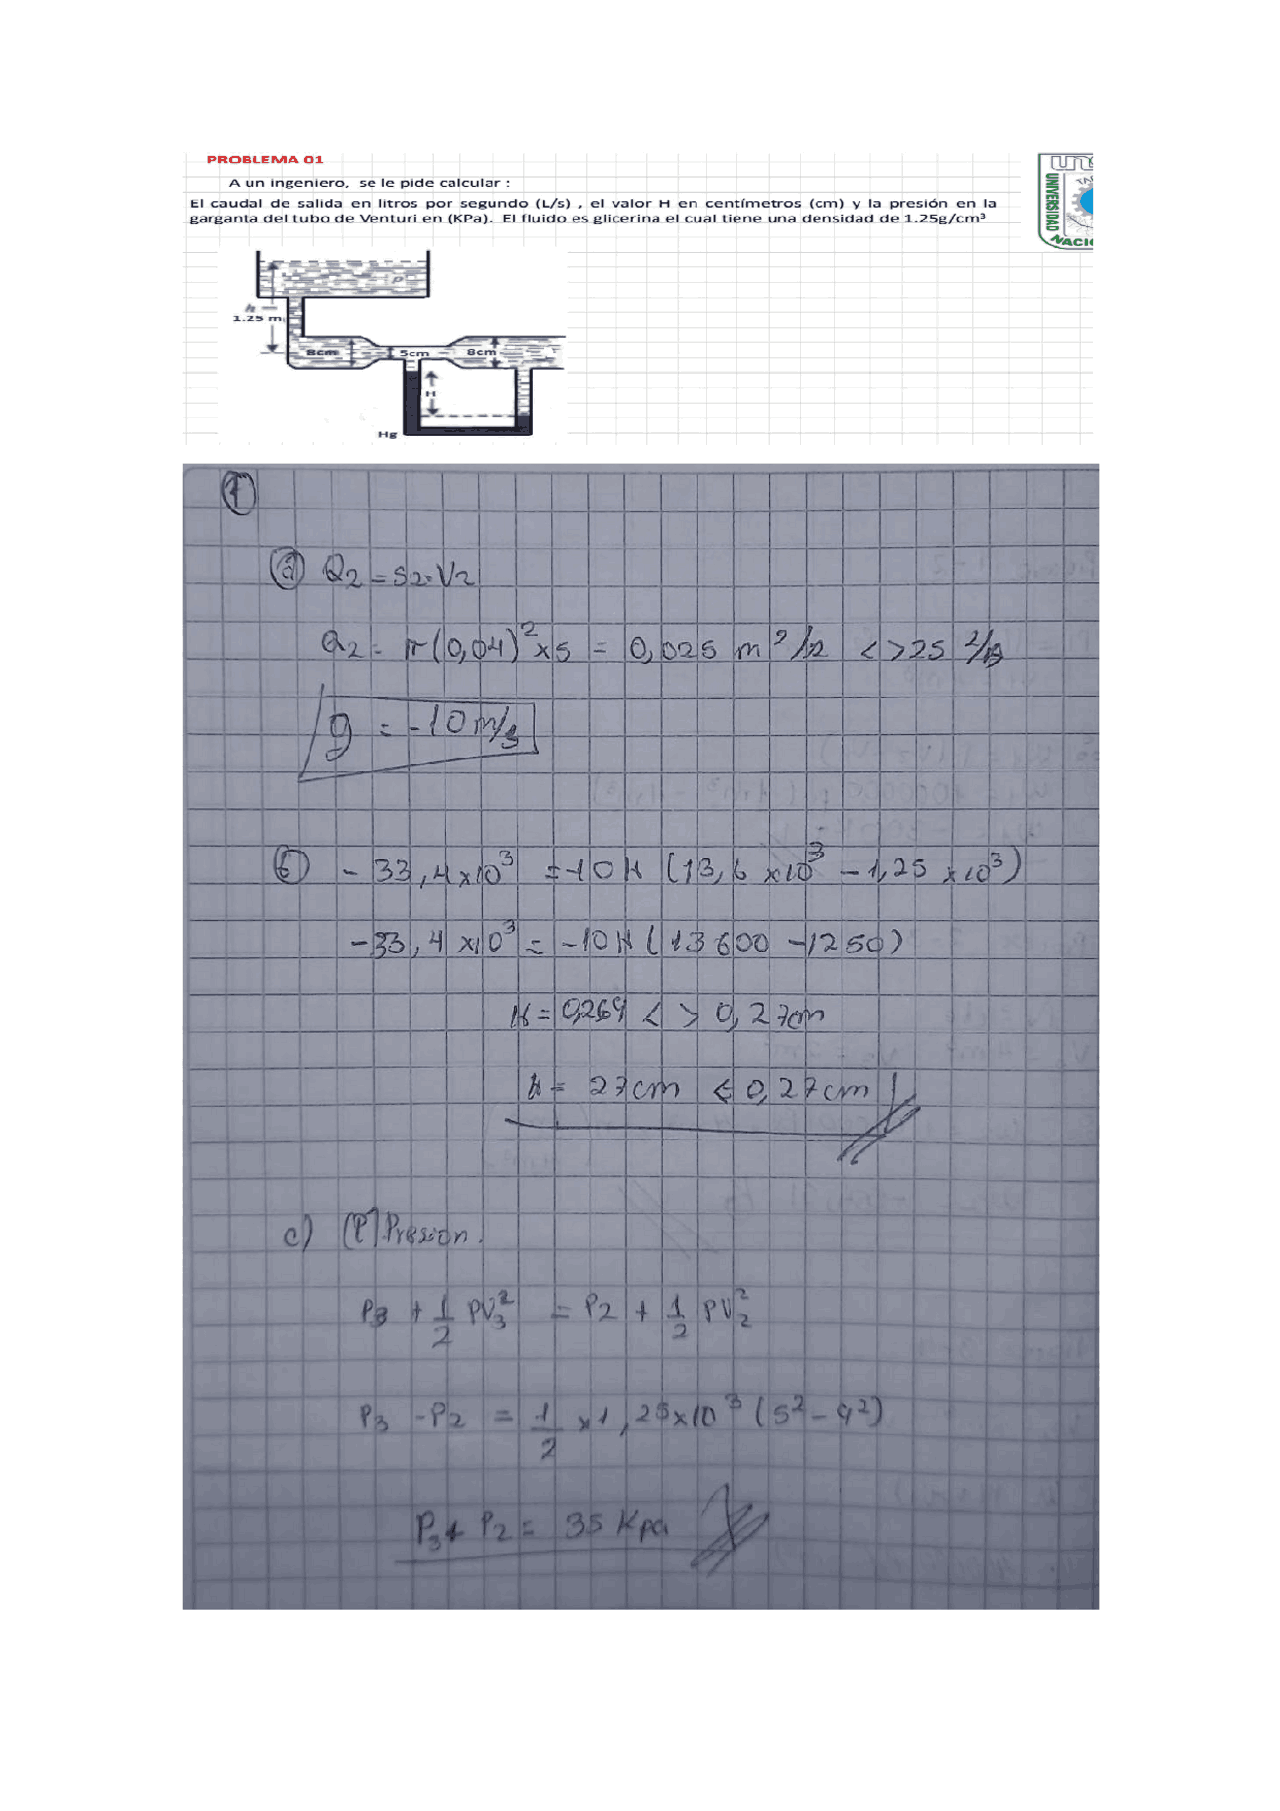 PROBLEMA 01
A un ingeniero, se le pide calcular :
El caudal de salida en litros por segundo (L/s) , el valor H en centímetros (cm) y la presión en la
garganta del tubo de Venturi en (KPa). El fluido es glicerina el cual tiene una densidad de 1.25g/cm³
UNIVERSIDAD
NACI
ρ
h
1.25 m
8cm
5cm
8cm
H
Hg
1
a) Q2 = S2·V2
Q2 = π(0,04)² x5 = 0,025 m³/s < > 25
g = -10 m/s
b) -33,4x10³ = -10H (13,6 x10³ - 1,25 x10³)
-33,4 x10³ = -10H (13600 - 1250)
H = 0,264 < > 0,27cm
H = 27cm < 0,27cm
c) (P) Presion.
P3 + 1/2 PV3² = P2 + 1/2 PV2²
P3 - P2 = 1/2 x1,25x10³ (5² - 4²)
P2 = 35 Kpa